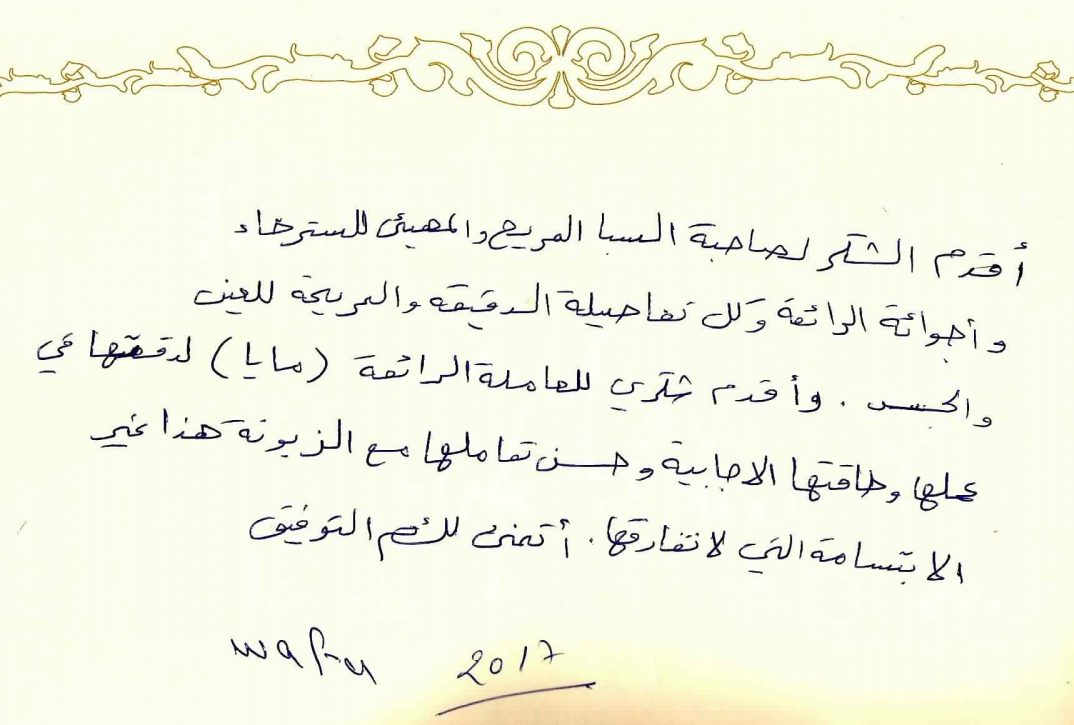 أقدم الشكر لصاحبة السبا المريح والمهيئ للسترخاء
وأجوائة الرائعة وكل تفاصيلة الدقيقة والمريحة للعين
والجسد . وأقدم شكري للعاملة الرائعة (مايا) لدقتها في
عملها وطاقتها الاجابية وحسن تعاملها مع الزبونة هذا غير
الابتسامة التي لا تفارقها . أتمنى لكم التوفيق
wafa 2017